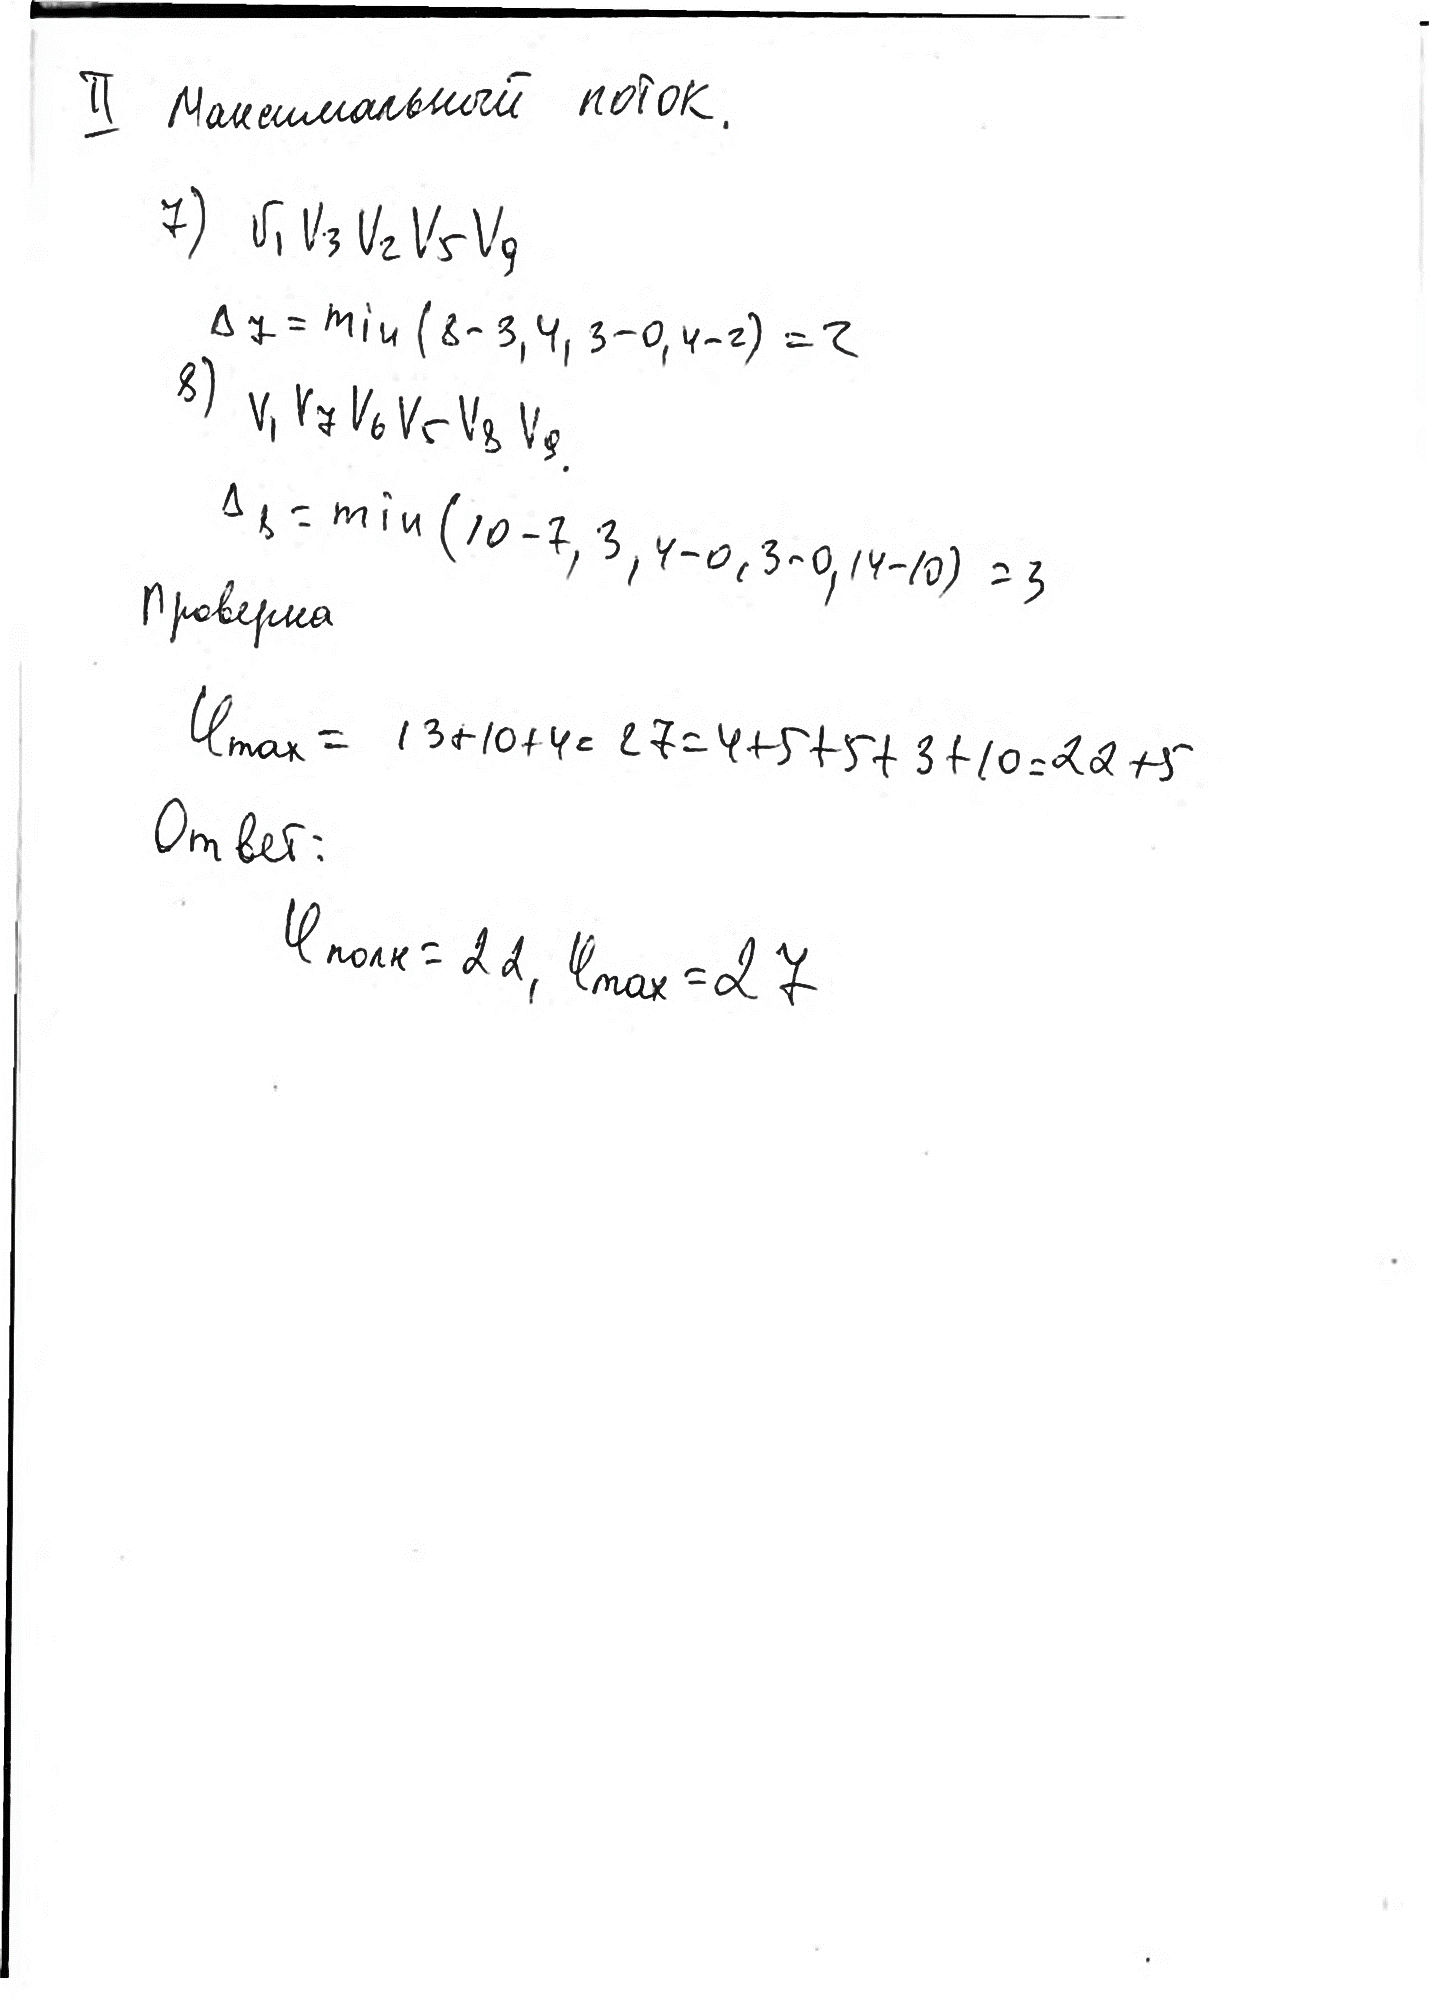 II Максимальный поток.
7) V1 V3 V2 V5 V9
Δ7 = min (8-3, 4, 3-0, 4-2) = 2
8)
V1 V7 V6 V5 V8 V9.
Δ8 = min (10-7, 3, 4-0, 3-0, 14-10) = 3
Проверка
φmax = 13+10+4= 27=4+5+5+3+10=22+5
Ответ:
φполн = 22, φmax = 27